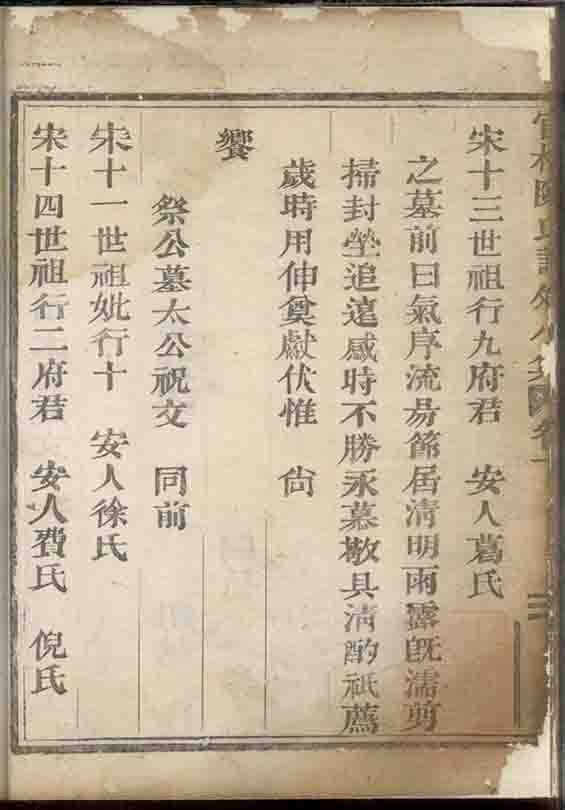 宋十三世祖行九府君　安人葛氏
之墓前曰氣序流易節居清明雨露既濡剪
掃封塋追遠感時不勝永慕敬具清酌祇薦
歲時用伸奠獻伏惟　尙
饗
祭公墓太公祝文　同前
宋十一世祖妣行十　安人徐氏
宋十四世祖行二府君　安人費氏　倪氏